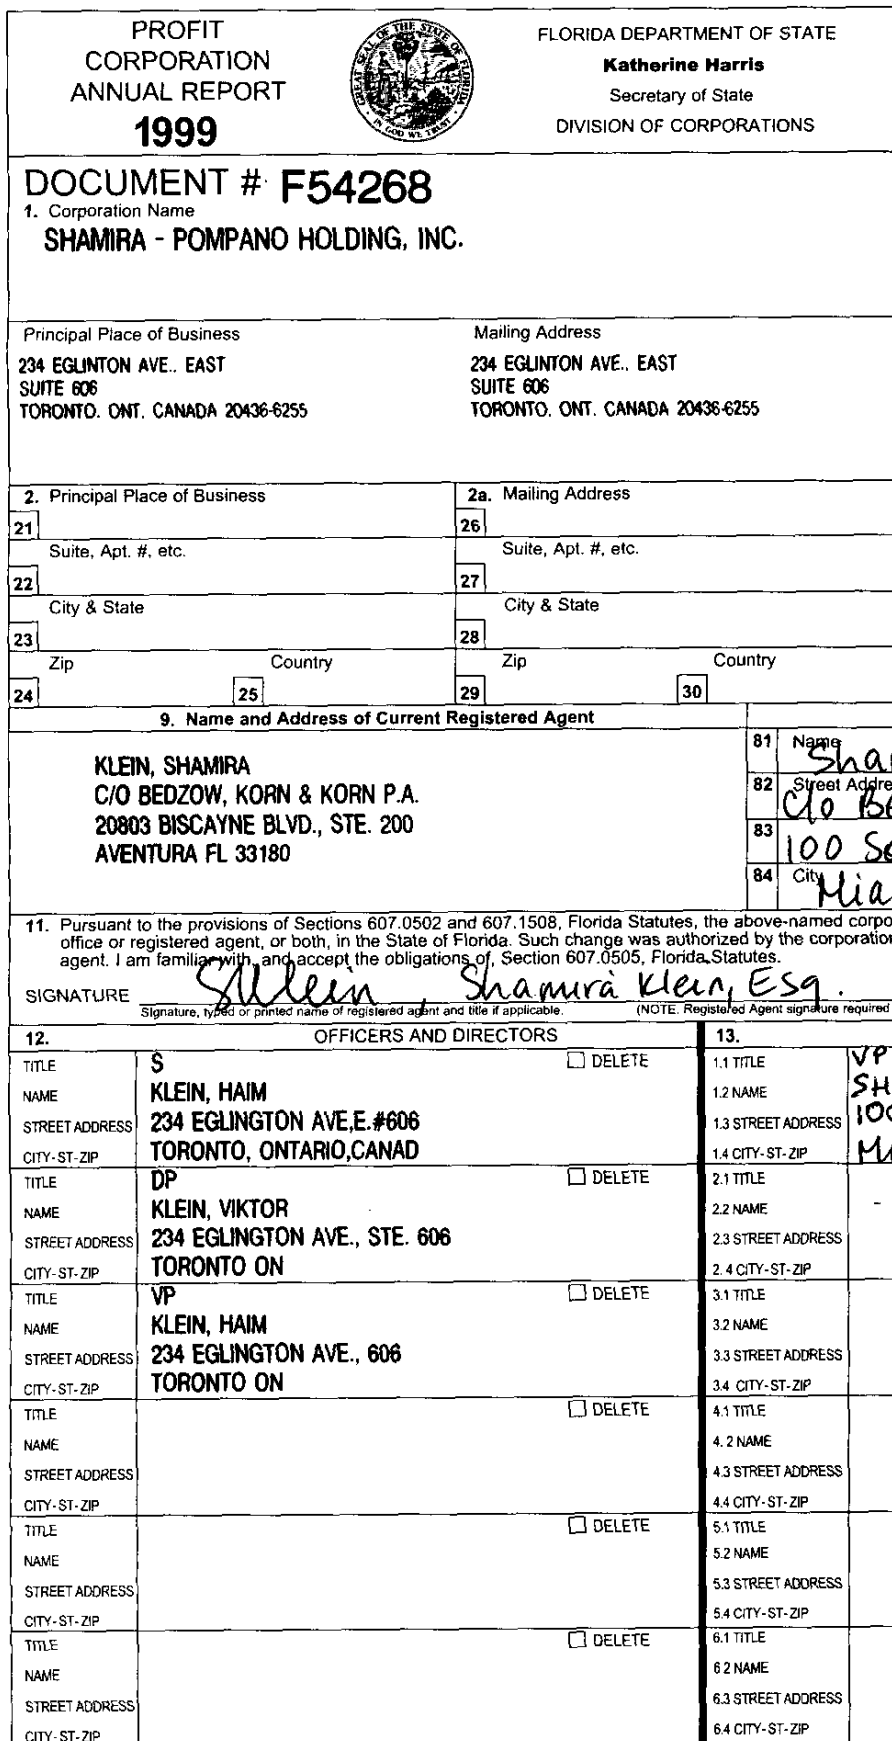 PROFIT
CORPORATION
ANNUAL REPORT
1999
GREAT SEAL OF THE STATE OF FLORIDA
IN GOD WE TRUST
FLORIDA DEPARTMENT OF STATE
Katherine Harris
Secretary of State
DIVISION OF CORPORATIONS
DOCUMENT # F54268
1. Corporation Name
SHAMIRA - POMPANO HOLDING, INC.
Principal Place of Business
234 EGLINTON AVE.. EAST
SUITE 606
TORONTO. ONT. CANADA 20436-6255
Mailing Address
234 EGLINTON AVE.. EAST
SUITE 606
TORONTO. ONT. CANADA 20436-6255
2. Principal Place of Business
21
Suite, Apt. #, etc.
22
City & State
23
Zip Country
24 25
2a. Mailing Address
26
Suite, Apt. #, etc.
27
City & State
28
Zip Country
29 30
9. Name and Address of Current Registered Agent
KLEIN, SHAMIRA
C/O BEDZOW, KORN & KORN P.A.
20803 BISCAYNE BLVD., STE. 200
AVENTURA FL 33180
81 Name
Sha
82 Street Addre
C/o Be
83
100 Se
84 City
Mia
11. Pursuant to the provisions of Sections 607.0502 and 607.1508, Florida Statutes, the above-named corpo
office or registered agent, or both, in the State of Florida. Such change was authorized by the corporation
agent. I am familiar with, and accept the obligations of, Section 607.0505, Florida Statutes.
SIGNATURE SKlein, Shamira Klein, Esq.
Signature, typed or printed name of registered agent and title if applicable. (NOTE. Registered Agent signature required
12. OFFICERS AND DIRECTORS
TITLE S DELETE
NAME KLEIN, HAIM
STREET ADDRESS 234 EGLINGTON AVE,E.#606
CITY-ST-ZIP TORONTO, ONTARIO,CANAD
TITLE DP DELETE
NAME KLEIN, VIKTOR
STREET ADDRESS 234 EGLINGTON AVE., STE. 606
CITY-ST-ZIP TORONTO ON
TITLE VP DELETE
NAME KLEIN, HAIM
STREET ADDRESS 234 EGLINGTON AVE., 606
CITY-ST-ZIP TORONTO ON
TITLE DELETE
NAME
STREET ADDRESS
CITY-ST-ZIP
TITLE DELETE
NAME
STREET ADDRESS
CITY-ST-ZIP
TITLE DELETE
NAME
STREET ADDRESS
CITY-ST-ZIP
13.
1.1 TITLE VP
1.2 NAME SH
1.3 STREET ADDRESS 100
1.4 CITY-ST-ZIP
2.1 TITLE
2.2 NAME
2.3 STREET ADDRESS
2.4 CITY-ST-ZIP
3.1 TITLE
3.2 NAME
3.3 STREET ADDRESS
3.4 CITY-ST-ZIP
4.1 TITLE
4.2 NAME
4.3 STREET ADDRESS
4.4 CITY-ST-ZIP
5.1 TITLE
5.2 NAME
5.3 STREET ADDRESS
5.4 CITY-ST-ZIP
6.1 TITLE
6.2 NAME
6.3 STREET ADDRESS
6.4 CITY-ST-ZIP